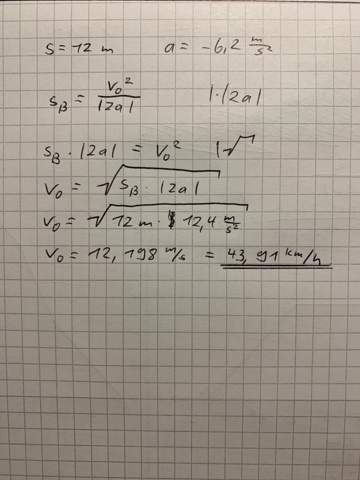 s = 12 m a = -6,2 m/s²
s_B = v₀²/|2a| |·|2a|
s_B · |2a| = v₀² |√
v₀ = √(s_B · |2a|)
v₀ = √(12 m · 12,4 m/s²)
v₀ = 12,198 m/s = 43,91 km/h